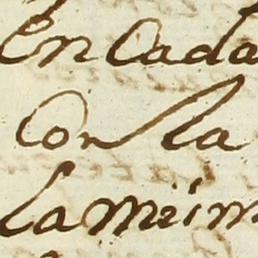 en cada
con la
la meim